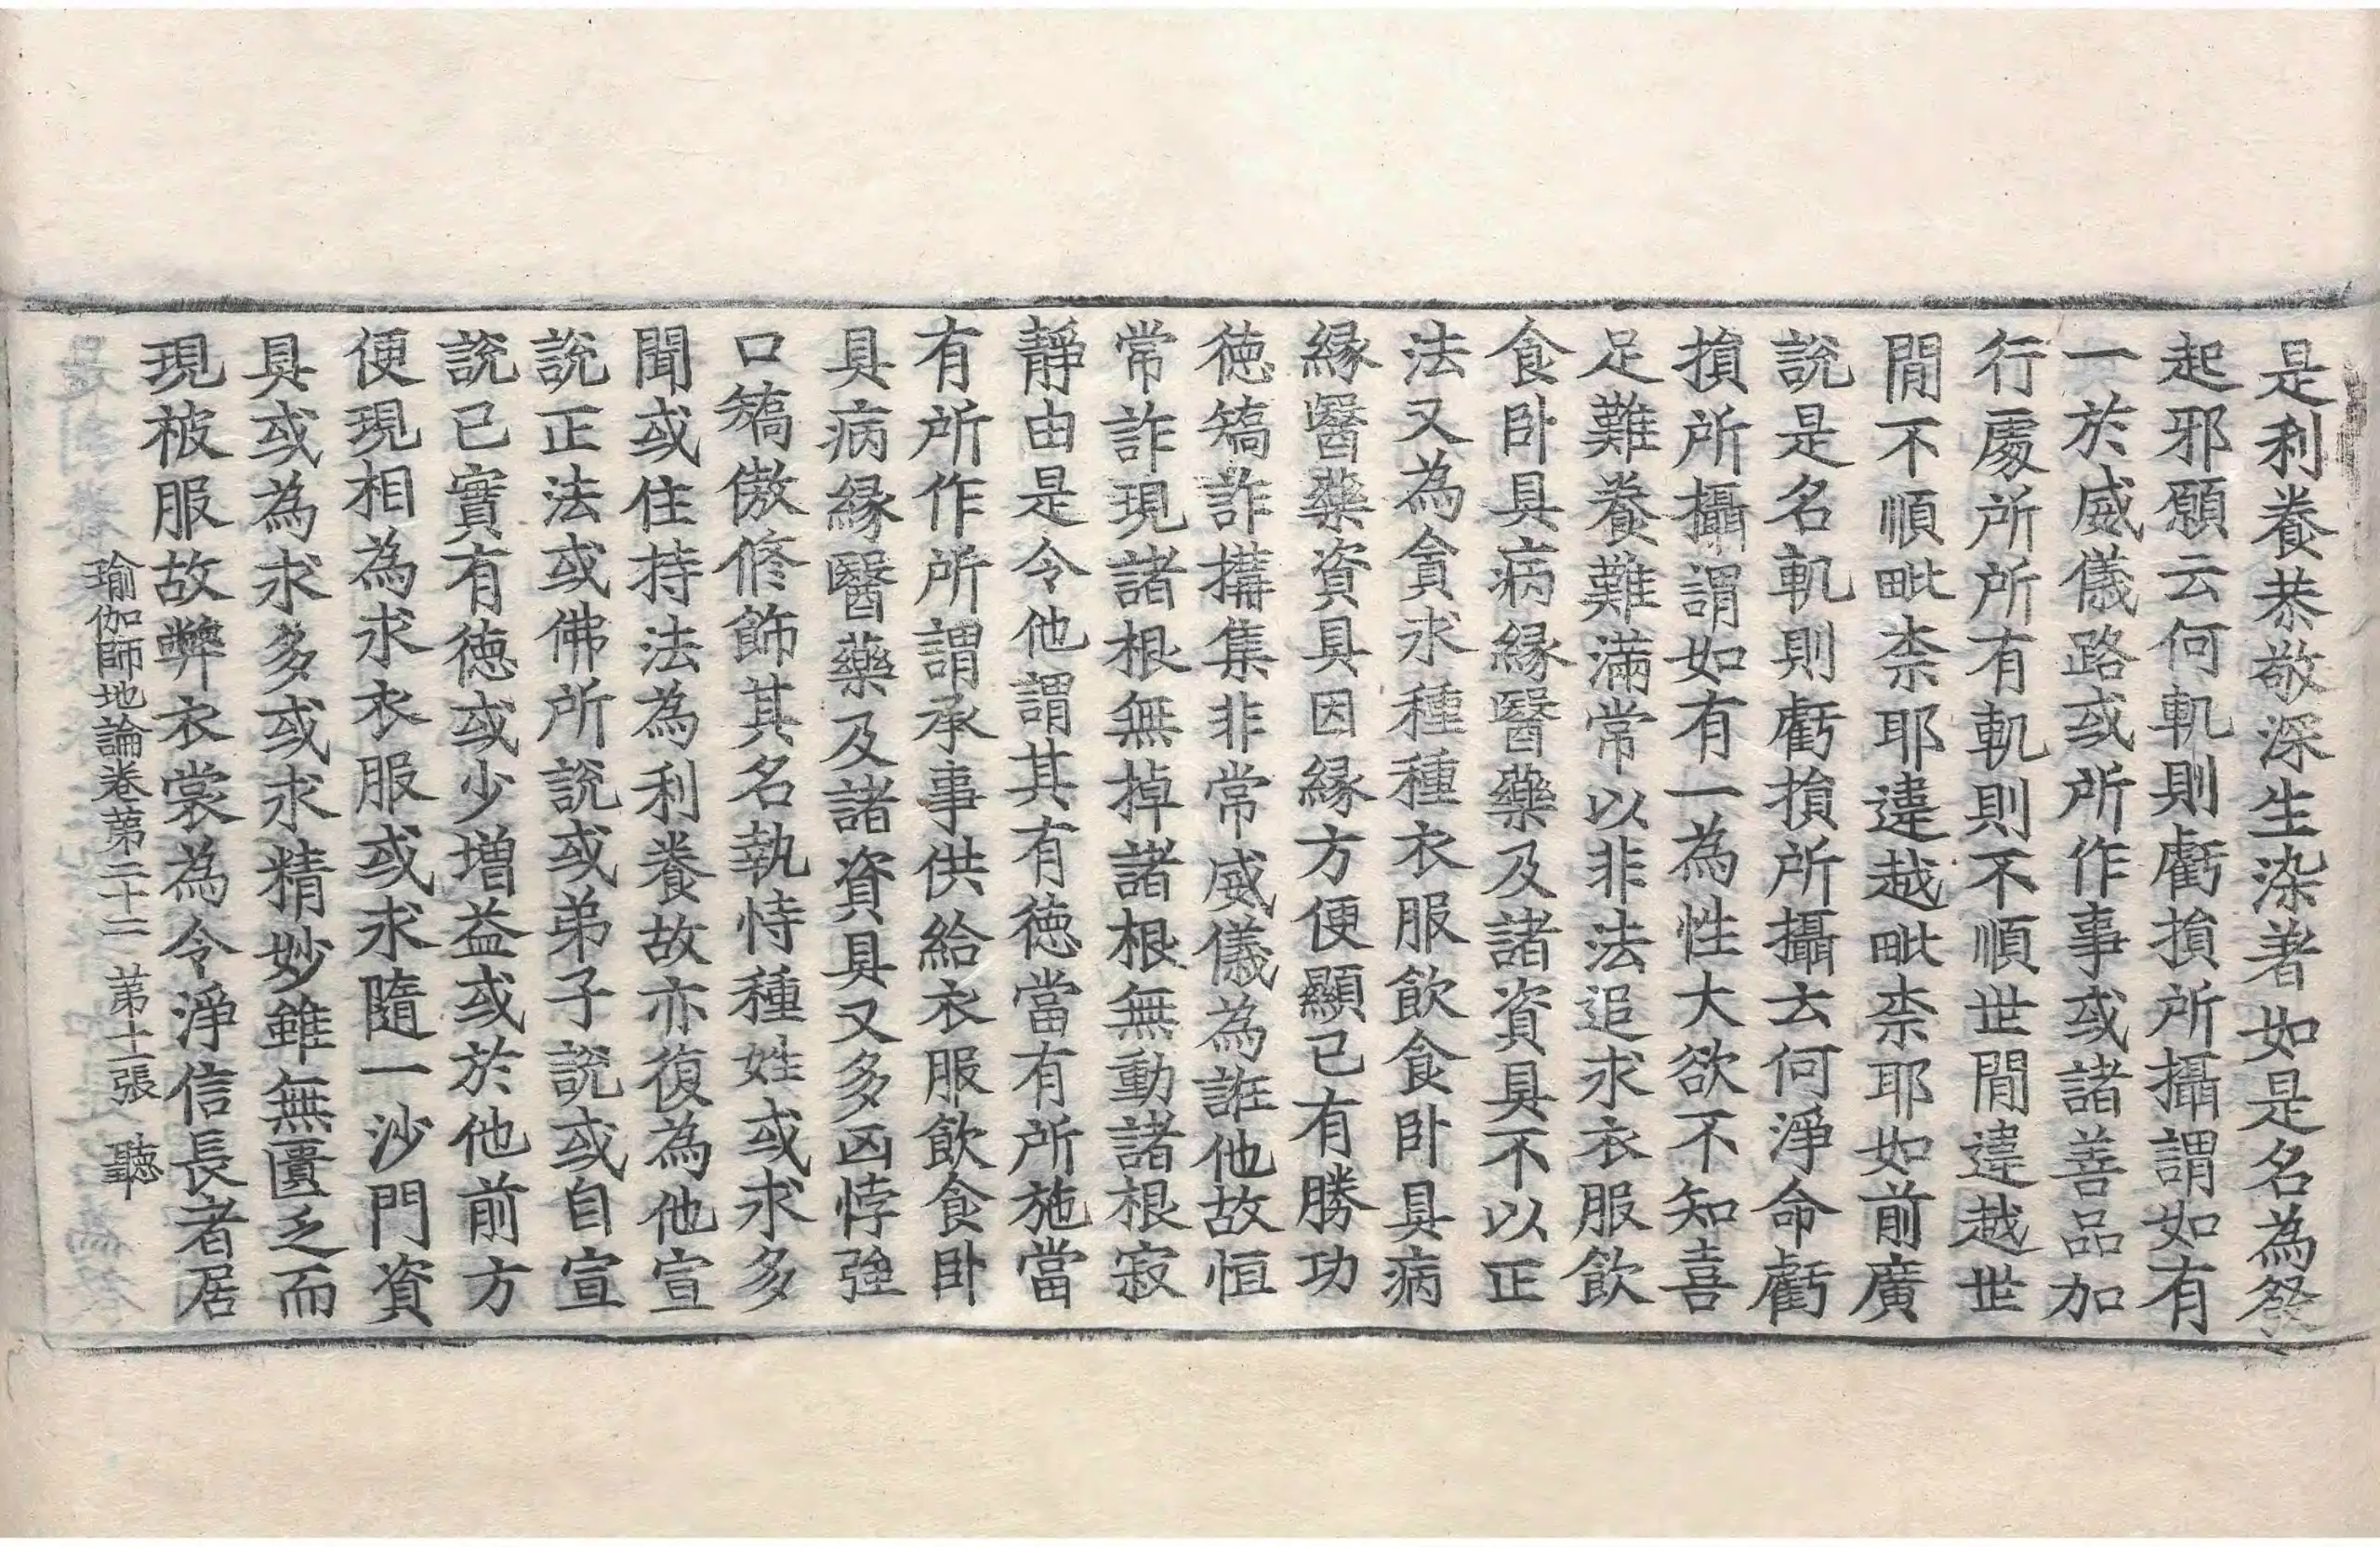 是利養恭敬深生染著如是名為發
起邪願云何軌則虧損所攝謂如有
一於威儀路或所作事或諸善品加
行處所所有軌則不順世間違越世
間不順毗柰耶違越毗柰耶如前廣
說是名軌則虧損所攝云何淨命虧
損所攝謂如有一為性大欲不知喜
足難養難滿常以非法追求衣服飲
食卧具病緣醫藥及諸資具不以正
法又為貪求種種衣服飲食卧具病
緣醫藥資具因緣方便顯己有勝功
德矯詐搆集非常威儀為誑他故恒
常詐現諸根無掉諸根無動諸根寂
靜由是令他謂其有德當有所施當
有所作所謂承事供給衣服飲食卧
具病緣醫藥及諸資具又多凶悖強
口矯傲修飾其名執恃種姓或求多
聞或住持法為利養故亦復為他宣
說正法或佛所說或弟子說或自宣
說已實有德或少增益或於他前方
便現相為求衣服或求隨一沙門資
具或為求多或求精妙雖無匱乏而
現被服故弊衣裳為令淨信長者居
瑜伽師地論卷第二十二 第十一張 聽